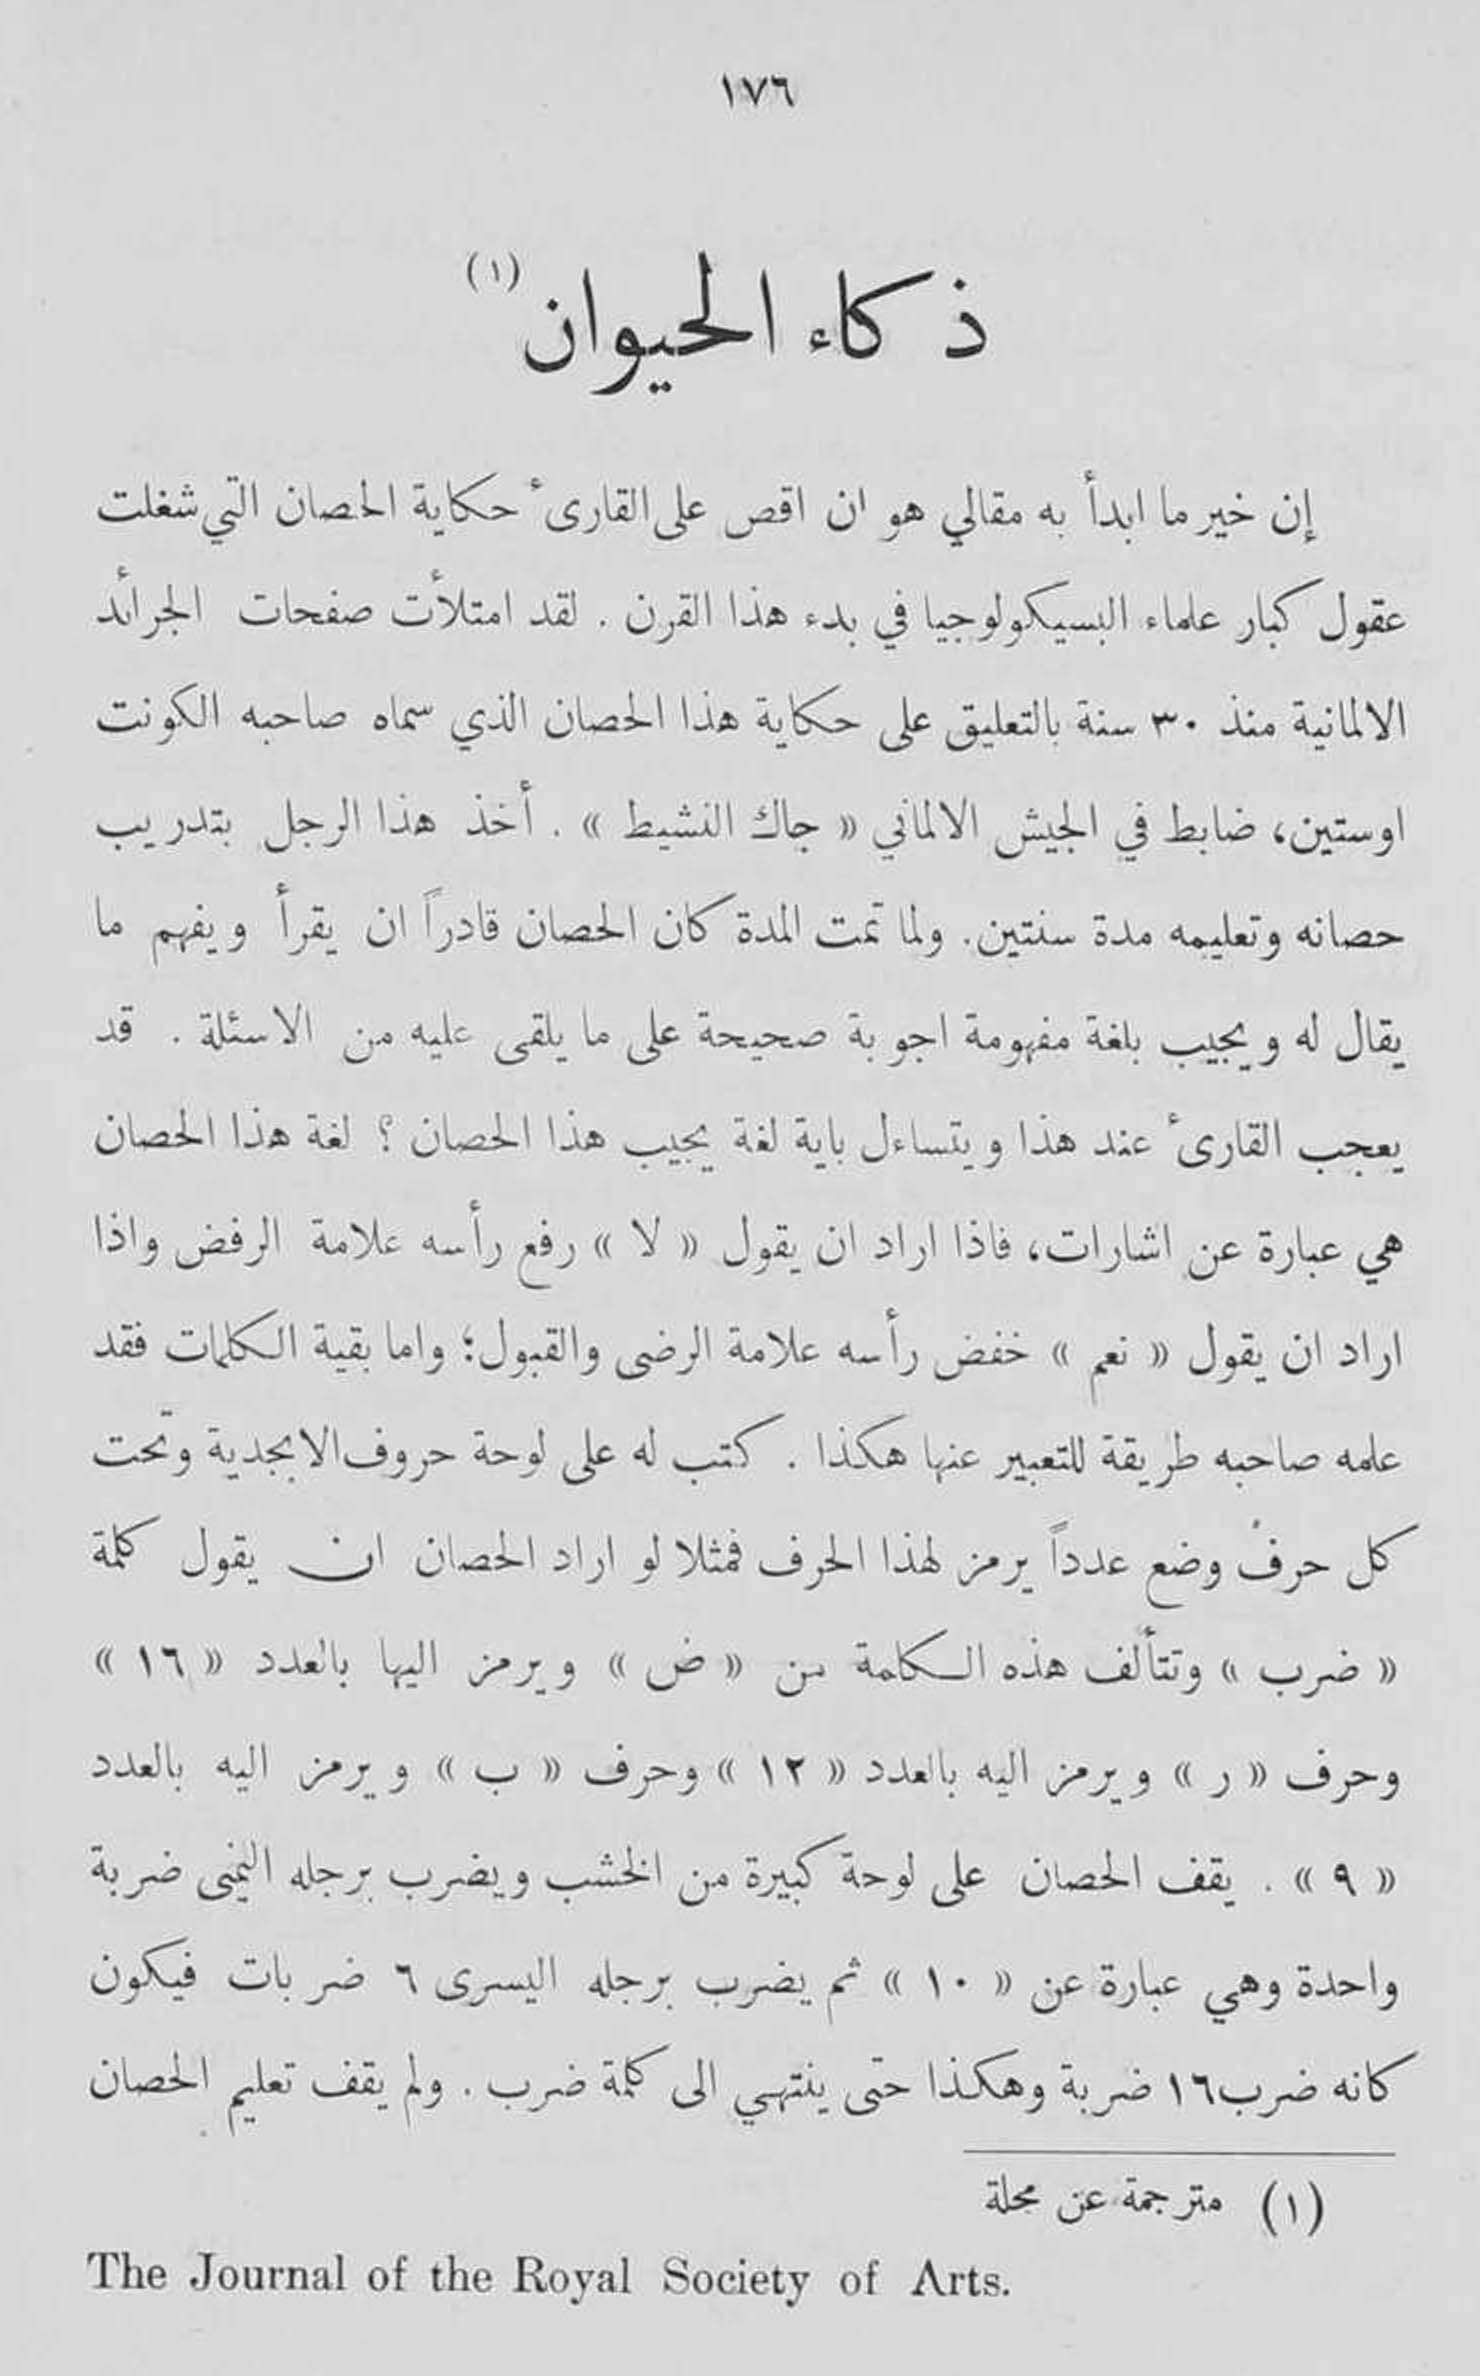 ١٧٦
ذكاء الحيوان (١)
إن خير ما ابدأ به مقالي هو ان اقص على القارئ حكاية الحصان التي شغلت
عقول كبار علماء البسيكولوجيا في بدء هذا القرن . لقد امتلأت صفحات الجرائد
الالمانية منذ ٣٠ سنة بالتعليق على حكاية هذا الحصان الذي سماه صاحبه الكونت
اوستين، ضابط في الجيش الالماني « جاك النشيط » . أخذ هذا الرجل بتدريب
حصانه وتعليمه مدة سنتين. ولما تمت المدة كان الحصان قادراً ان يقرأ ويفهم ما
يقال له ويجيب بلغة مفهومة اجوبة صحيحة على ما يلقى عليه من الاسئلة . قد
يعجب القارئ عند هذا ويتساءل باية لغة يجيب هذا الحصان ؟ لغة هذا الحصان
هي عبارة عن اشارات، فاذا اراد ان يقول « لا » رفع رأسه علامة الرفض واذا
اراد ان يقول « نعم » خفض رأسه علامة الرضى والقبول؛ واما بقية الكلمات فقد
علمه صاحبه طريقة للتعبير عنها هكذا . كتب له على لوحة حروف الابجدية وتحت
كل حرف وضع عدداً يرمز لهذا الحرف فمثلا لو اراد الحصان ان يقول كلمة
« ضرب » وتتألف هذه الكلمة من « ض » ويرمز اليها بالعدد « ١٦ »
وحرف « ر » ويرمز اليه بالعدد « ١٢ » وحرف « ب » ويرمز اليه بالعدد
« ٩ » . يقف الحصان على لوحة كبيرة من الخشب ويضرب برجله اليمنى ضربة
واحدة وهي عبارة عن « ١٠ » ثم يضرب برجله اليسرى ٦ ضربات فيكون
كانه ضرب ١٦ ضربة وهكذا حتى ينتهي الى كلمة ضرب . ولم يقف تعليم الحصان
(١) مترجمة عن مجلة
The Journal of the Royal Society of Arts.